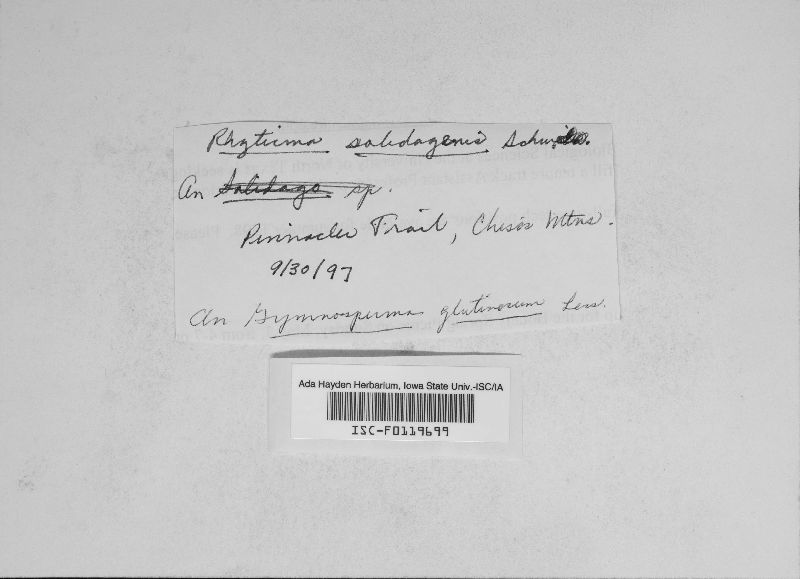 Rhytisma solidagenis Schw.
On Solidago sp.
Pinnacles Trail, Chisos Mtns.
9/30/97
On Gymnosperma glutinosum Less.
Ada Hayden Herbarium, Iowa State Univ.-ISC/IA
ISC-F0119699